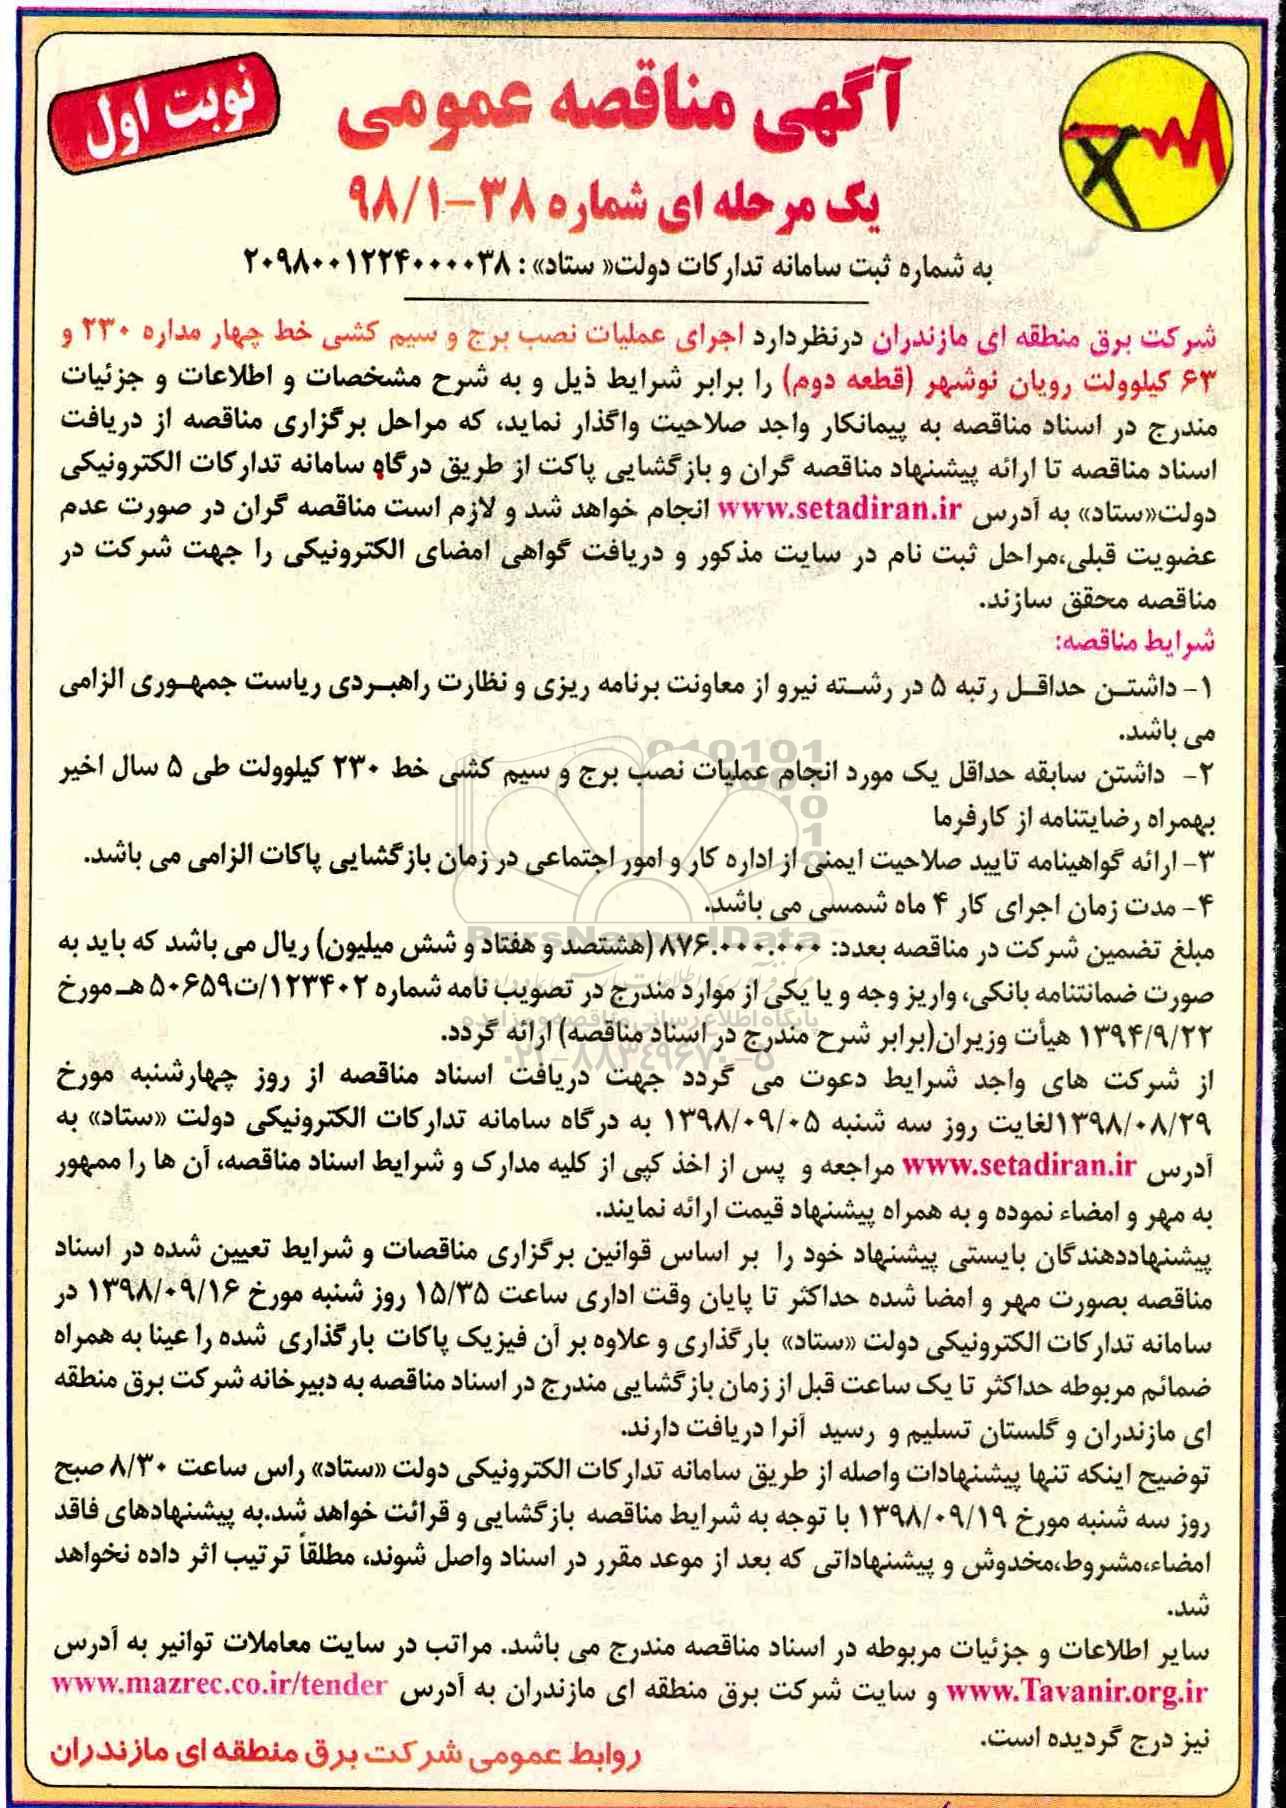 نوبت اول
آگهی مناقصه عمومی
یک مرحله ای شماره ۳۸-۹۸/۱
به شماره ثبت سامانه تدارکات دولت« ستاد» : ۲۰۹۸۰۰۱۲۲۴۰۰۰۰۳۸
شرکت برق منطقه ای مازندران درنظردارد اجرای عملیات نصب برج و سیم کشی خط چهار مداره ۲۳۰ و
۶۳ کیلوولت رویان نوشهر (قطعه دوم) را برابر شرایط ذیل و به شرح مشخصات و اطلاعات و جزئیات
مندرج در اسناد مناقصه به پیمانکار واجد صلاحیت واگذار نماید، که مراحل برگزاری مناقصه از دریافت
اسناد مناقصه تا ارائه پیشنهاد مناقصه گران و بازگشایی پاکت از طریق درگاه سامانه تدارکات الکترونیکی
دولت«ستاد» به آدرس www.setadiran.ir انجام خواهد شد و لازم است مناقصه گران در صورت عدم
عضویت قبلی،مراحل ثبت نام در سایت مذکور و دریافت گواهی امضای الکترونیکی را جهت شرکت در
مناقصه محقق سازند.
شرایط مناقصه:
۱- داشتن حداقل رتبه ۵ در رشته نیرو از معاونت برنامه ریزی و نظارت راهبردی ریاست جمهوری الزامی
می باشد.
۲- داشتن سابقه حداقل یک مورد انجام عملیات نصب برج و سیم کشی خط ۲۳۰ کیلوولت طی ۵ سال اخیر
بهمراه رضایتنامه از کارفرما
۳- ارائه گواهینامه تایید صلاحیت ایمنی از اداره کار و امور اجتماعی در زمان بازگشایی پاکات الزامی می باشد.
۴- مدت زمان اجرای کار ۴ ماه شمسی می باشد.
ParsNamadData
مبلغ تضمین شرکت در مناقصه بعدد: ۸۷۶.۰۰۰.۰۰۰ (هشتصد و هفتاد و شش میلیون) ریال می باشد که باید به
صورت ضمانتنامه بانکی، واریز وجه و یا یکی از موارد مندرج در تصویب نامه شماره ۱۲۳۴۰۲/ت۵۰۶۵۹ هـ مورخ
پایگاه اطلاع رسانی مناقصه و مزایده
۱۳۹۴/۹/۲۲ هیأت وزیران(برابر شرح مندرج در اسناد مناقصه) ارائه گردد.
۰۲۱-۸۸۳۴۹۶۷۰-۵
از شرکت های واجد شرایط دعوت می گردد جهت دریافت اسناد مناقصه از روز چهارشنبه مورخ
۱۳۹۸/۰۸/۲۹لغایت روز سه شنبه ۱۳۹۸/۰۹/۰۵ به درگاه سامانه تدارکات الکترونیکی دولت «ستاد» به
آدرس www.setadiran.ir مراجعه و پس از اخذ کپی از کلیه مدارک و شرایط اسناد مناقصه، آن ها را ممهور
به مهر و امضاء نموده و به همراه پیشنهاد قیمت ارائه نمایند.
پیشنهاددهندگان بایستی پیشنهاد خود را بر اساس قوانین برگزاری مناقصات و شرایط تعیین شده در اسناد
مناقصه بصورت مهر و امضا شده حداکثر تا پایان وقت اداری ساعت ۱۵/۳۵ روز شنبه مورخ ۱۳۹۸/۰۹/۱۶ در
سامانه تدارکات الکترونیکی دولت «ستاد» بارگذاری و علاوه بر آن فیزیک پاکات بارگذاری شده را عینا به همراه
ضمائم مربوطه حداکثر تا یک ساعت قبل از زمان بازگشایی مندرج در اسناد مناقصه به دبیرخانه شرکت برق منطقه
ای مازندران و گلستان تسلیم و رسید آنرا دریافت دارند.
توضیح اینکه تنها پیشنهادات واصله از طریق سامانه تدارکات الکترونیکی دولت «ستاد» راس ساعت ۸/۳۰ صبح
روز سه شنبه مورخ ۱۳۹۸/۰۹/۱۹ با توجه به شرایط مناقصه بازگشایی و قرائت خواهد شد.به پیشنهادهای فاقد
امضاء،مشروط،مخدوش و پیشنهاداتی که بعد از موعد مقرر در اسناد واصل شوند، مطلقاً ترتیب اثر داده نخواهد
شد.
سایر اطلاعات و جزئیات مربوطه در اسناد مناقصه مندرج می باشد. مراتب در سایت معاملات توانیر به آدرس
www.Tavanir.org.ir و سایت شرکت برق منطقه ای مازندران به آدرس www.mazrec.co.ir/tender
نیز درج گردیده است.
روابط عمومی شرکت برق منطقه ای مازندران